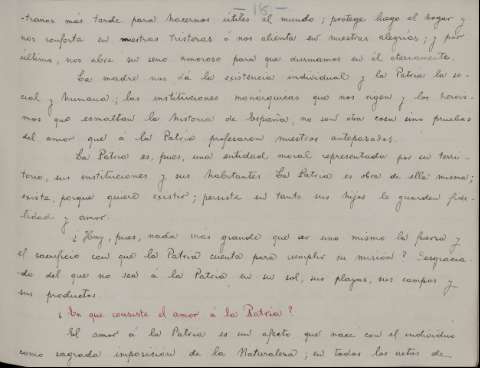 - 15 -
-trarnos más tarde para hacernos útiles al mundo; protege luego el hogar y
nos conforta en nuestras tristezas ó nos alienta en nuestras alegrías; y por
último, nos abre su seno amoroso para que durmamos en él eternamente.
La madre nos dá la existencia individual y la Patria la so-
cial y humana; las instituciones monárquicas que nos rigen y los herois-
mos que esmaltan la historia de España, no son otra cosa que pruebas
del amor que á la Patria profesaron nuestros antepasados.
La Patria es, pues, una entidad moral representada por su terri-
torio, sus instituciones y sus habitantes. La Patria es obra de ella misma;
existe, porque quiere existir; persiste en tanto sus hijos la guarden fide-
lidad y amor.
¿Hay, pues, nada más grande que ser uno mismo la fuerza y
el sacrificio con que la Patria cuenta para cumplir su misión? Desgracia-
do del que no vea á la Patria en su sol, sus playas, sus campos y
sus productos.
¿En que consiste el amor á la Patria?
El amor á la Patria es un afecto que nace con el individuo
como sagrada imposición de la Naturaleza; en todos los actos de